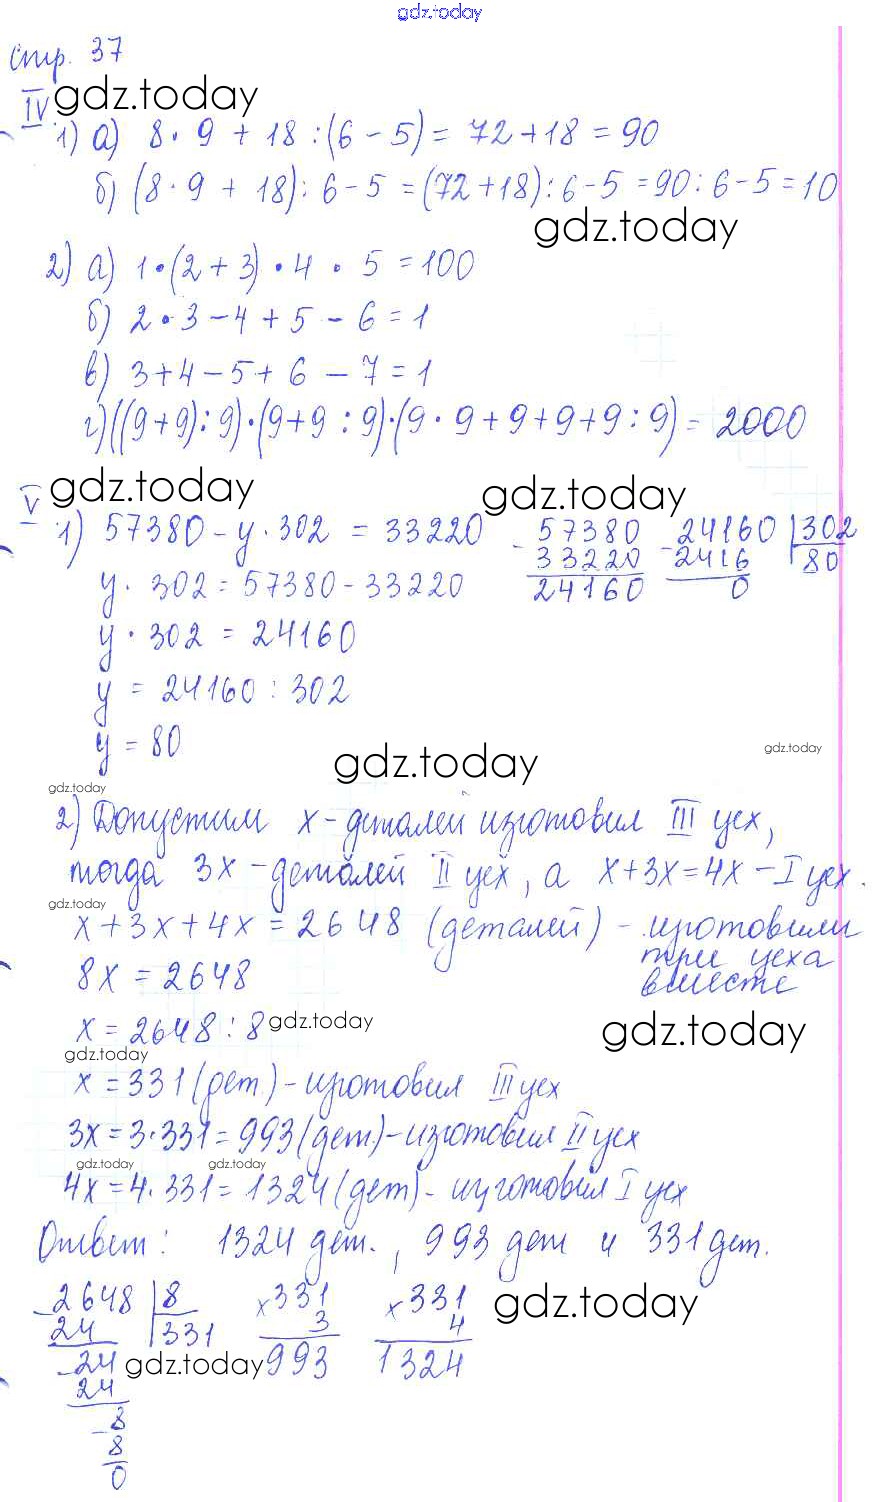 gdz.today
стр. 37
IV gdz.today
1) а) 8 · 9 + 18 : (6 - 5) = 72 + 18 = 90
б) (8 · 9 + 18) : 6 - 5 = (72 + 18) : 6 - 5 = 90 : 6 - 5 = 10
gdz.today
2) а) 1 · (2 + 3) · 4 · 5 = 100
б) 2 · 3 - 4 + 5 - 6 = 1
в) 3 + 4 - 5 + 6 - 7 = 1
г) ((9 + 9) : 9) · (9 + 9 : 9) · (9 · 9 + 9 + 9 + 9 : 9) = 2000
V gdz.today gdz.today
1) 57380 - y · 302 = 33220 - 57380 - 24160 | 302
y · 302 = 57380 - 33220 33220 2416 80
24160 0
y · 302 = 24160
y = 24160 : 302
y = 80
gdz.today gdz.today
gdz.today
2) Допустим x - деталей изготовил III цех,
тогда 3x - деталей II цех, а x + 3x = 4x - I цех.
gdz.today
x + 3x + 4x = 2648 (деталей) - изготовили
три цеха
8x = 2648 вместе
x = 2648 : 8 gdz.today gdz.today
gdz.today
x = 331 (дет.) - изготовил III цех
3x = 3 · 331 = 993 (дет.) - изготовил II цех
gdz.today gdz.today
4x = 4 · 331 = 1324 (дет) - изготовил I цех
Ответ: 1324 дет., 993 дет и 331 дет.
- 2648 | 8 x 331 x 331 gdz.today
24 331 3 4
- 24 gdz.today 993 1324
24
- 8
8
0